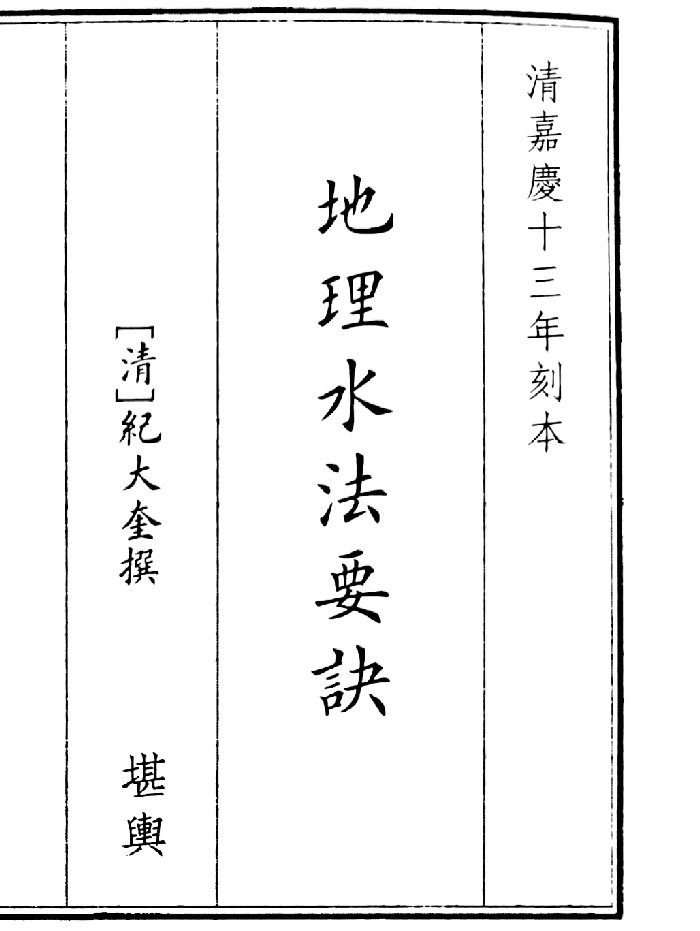 清嘉慶十三年刻本
地理水法要訣
[清]紀大奎撰
堪輿